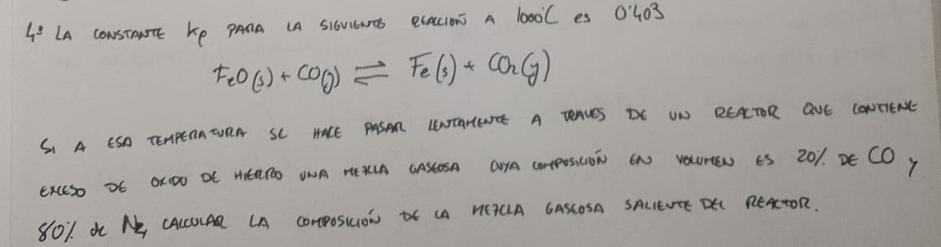 4º LA CONSTANTE Kp PARA LA SIGUIENTE REACCIÓN A 1000ºC es 0'403
FeO(s) + CO(g) ⇌ Fe(s) + CO2(g)
SI A ESA TEMPERATURA SE HACE PASAR LENTAMENTE A TRAVES DE UN REACTOR QUE CONTIENE
EXCESO DE OXIDO DE HIERRO UNA MEZCLA GASEOSA CUYA COMPOSICIÓN EN VOLUMEN ES 20% DE CO y
80% de N2, CALCULAR LA COMPOSICIÓN DE LA MEZCLA GASEOSA SALIENTE DEL REACTOR.